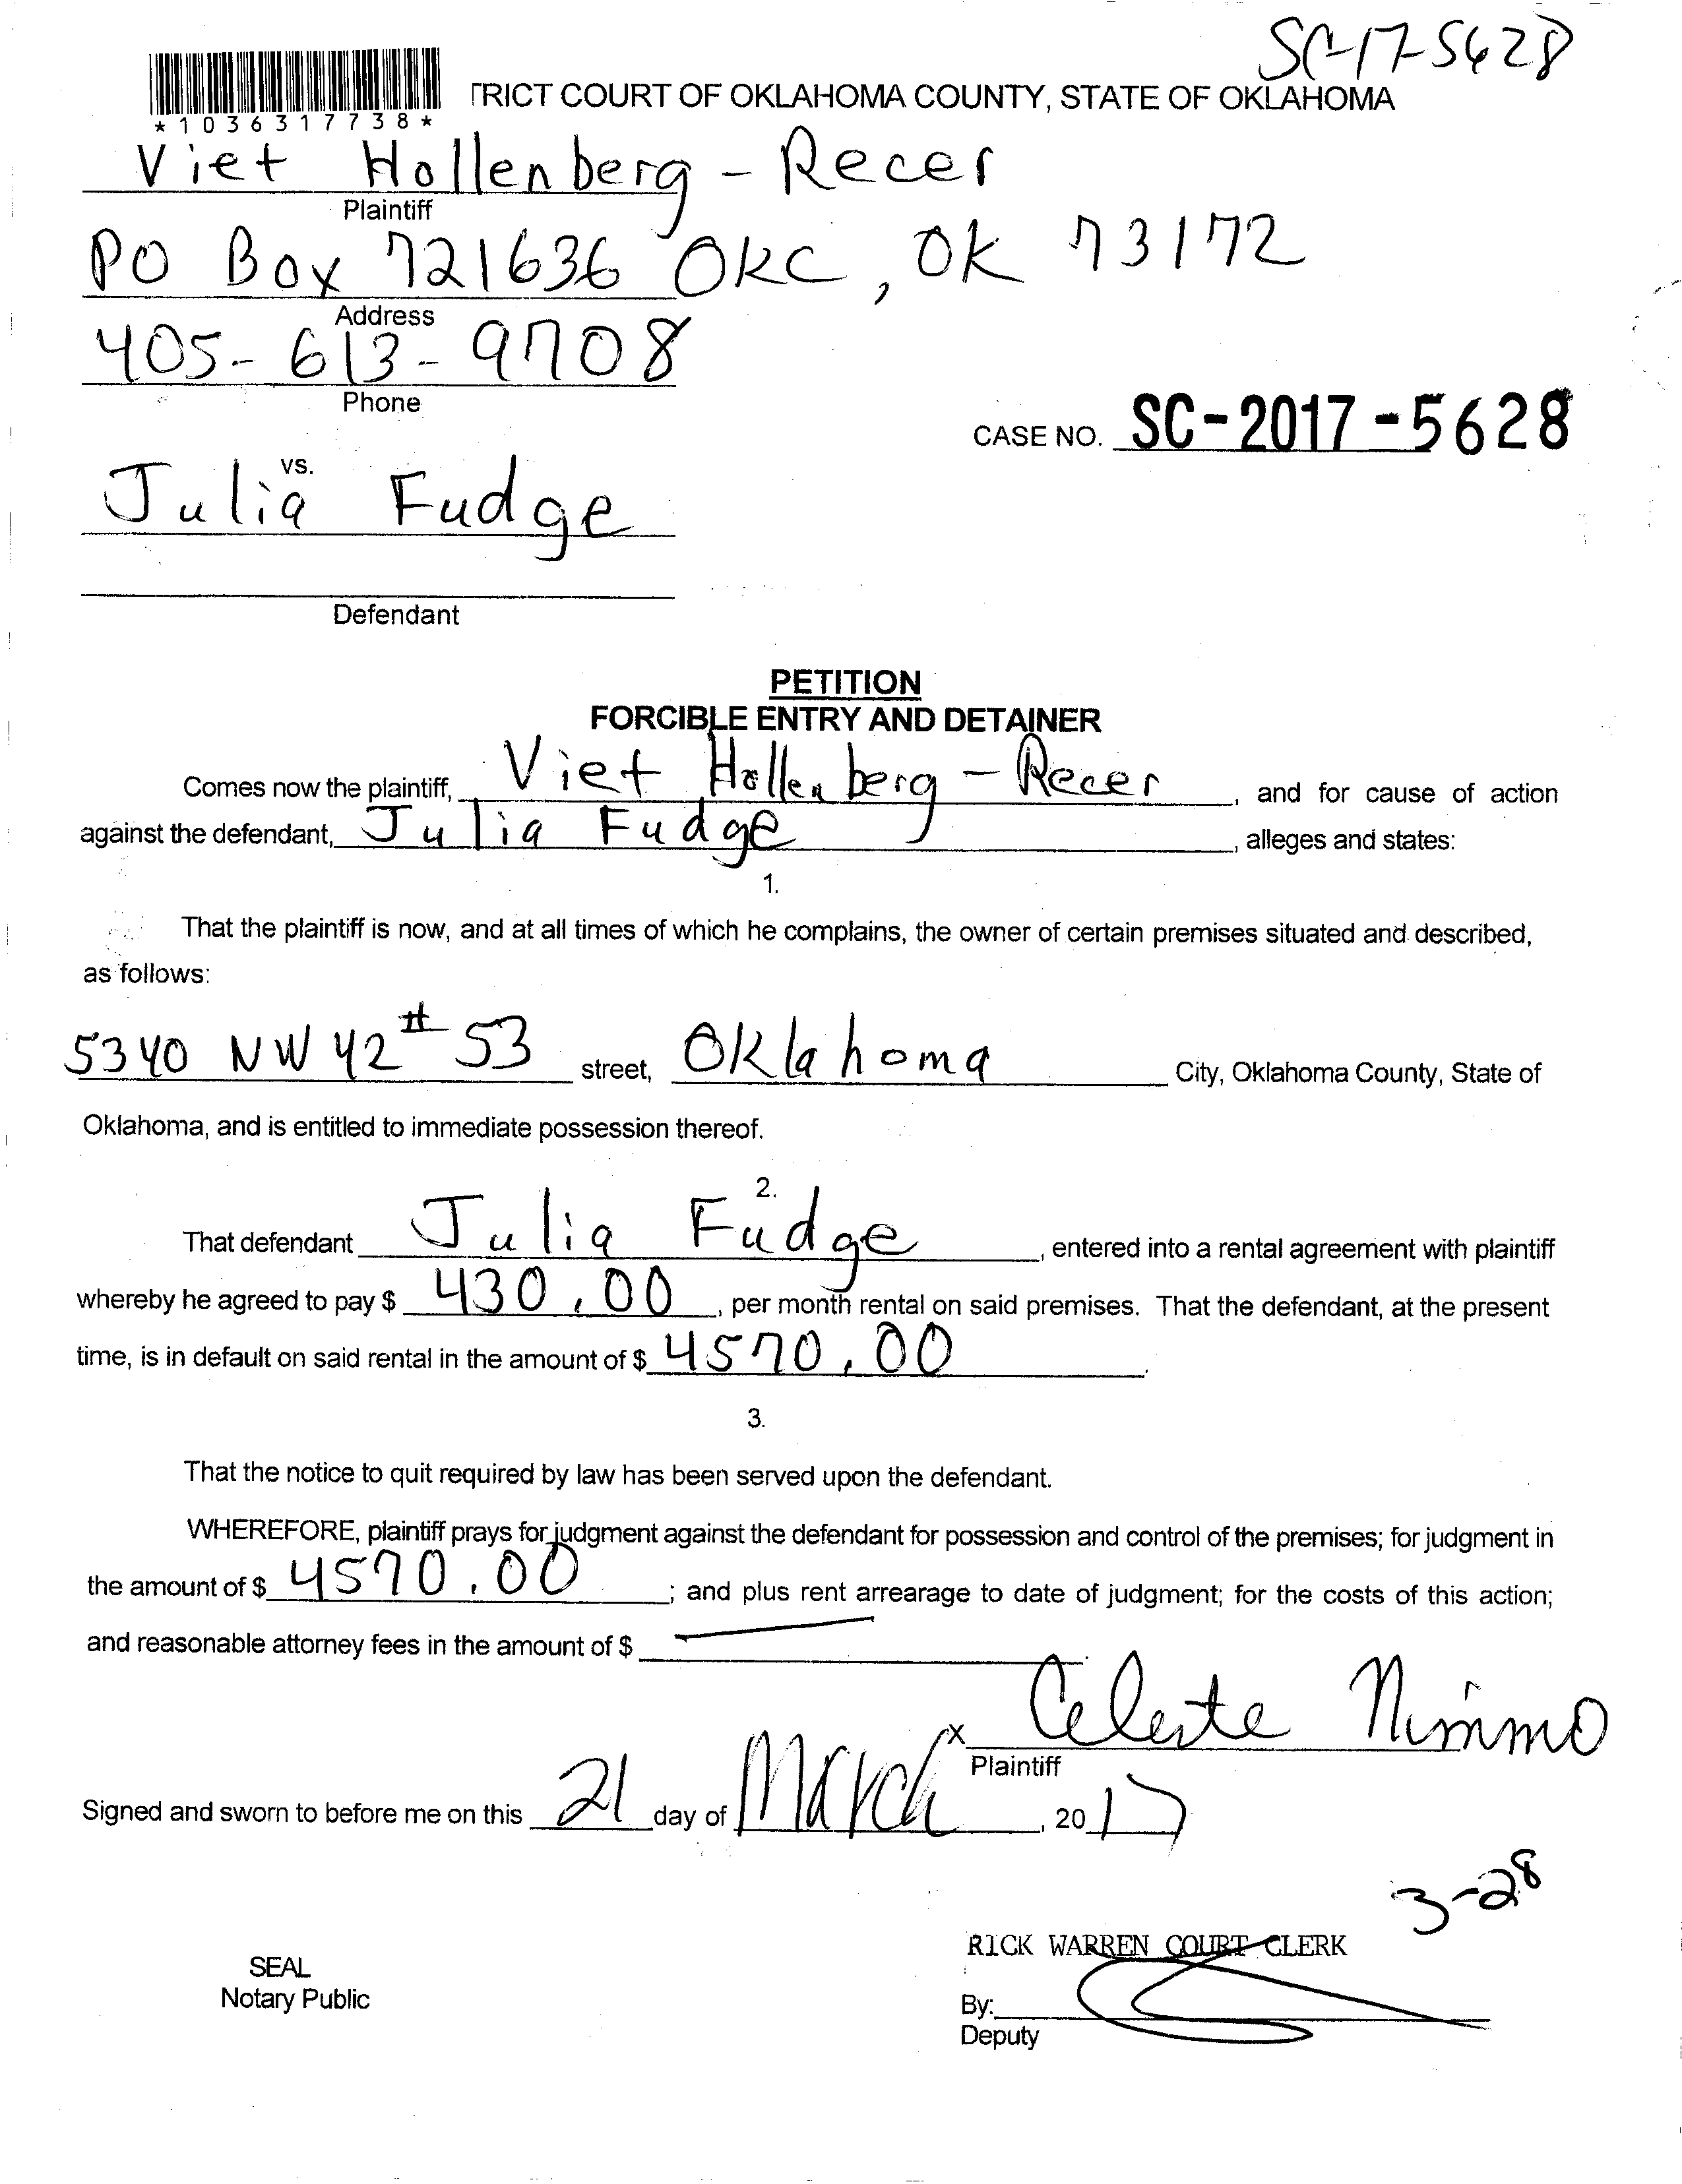 SC-17-5628
*1036317738*
TRICT COURT OF OKLAHOMA COUNTY, STATE OF OKLAHOMA
Viet Hollenberg-Recer
Plaintiff
PO Box 721636 OKC, OK 73172
Address
405-613-9708
Phone
CASE NO. SC-2017-5628
vs.
Julia Fudge
Defendant
PETITION
FORCIBLE ENTRY AND DETAINER
Comes now the plaintiff, Viet Hollenberg-Recer, and for cause of action
against the defendant, Julia Fudge, alleges and states:
1.
That the plaintiff is now, and at all times of which he complains, the owner of certain premises situated and described,
as follows:
5340 NW 42 # 53 street, Oklahoma City, Oklahoma County, State of
Oklahoma, and is entitled to immediate possession thereof.
2.
That defendant Julia Fudge, entered into a rental agreement with plaintiff
whereby he agreed to pay $ 430.00, per month rental on said premises. That the defendant, at the present
time, is in default on said rental in the amount of $ 4570.00.
3.
That the notice to quit required by law has been served upon the defendant.
WHEREFORE, plaintiff prays for judgment against the defendant for possession and control of the premises; for judgment in
the amount of $ 4570.00; and plus rent arrearage to date of judgment; for the costs of this action;
and reasonable attorney fees in the amount of $ —.
x Celeste Nimmo
Plaintiff
Signed and sworn to before me on this 21 day of March, 2017
3-28
RICK WARREN COURT CLERK
SEAL
Notary Public
By:
Deputy